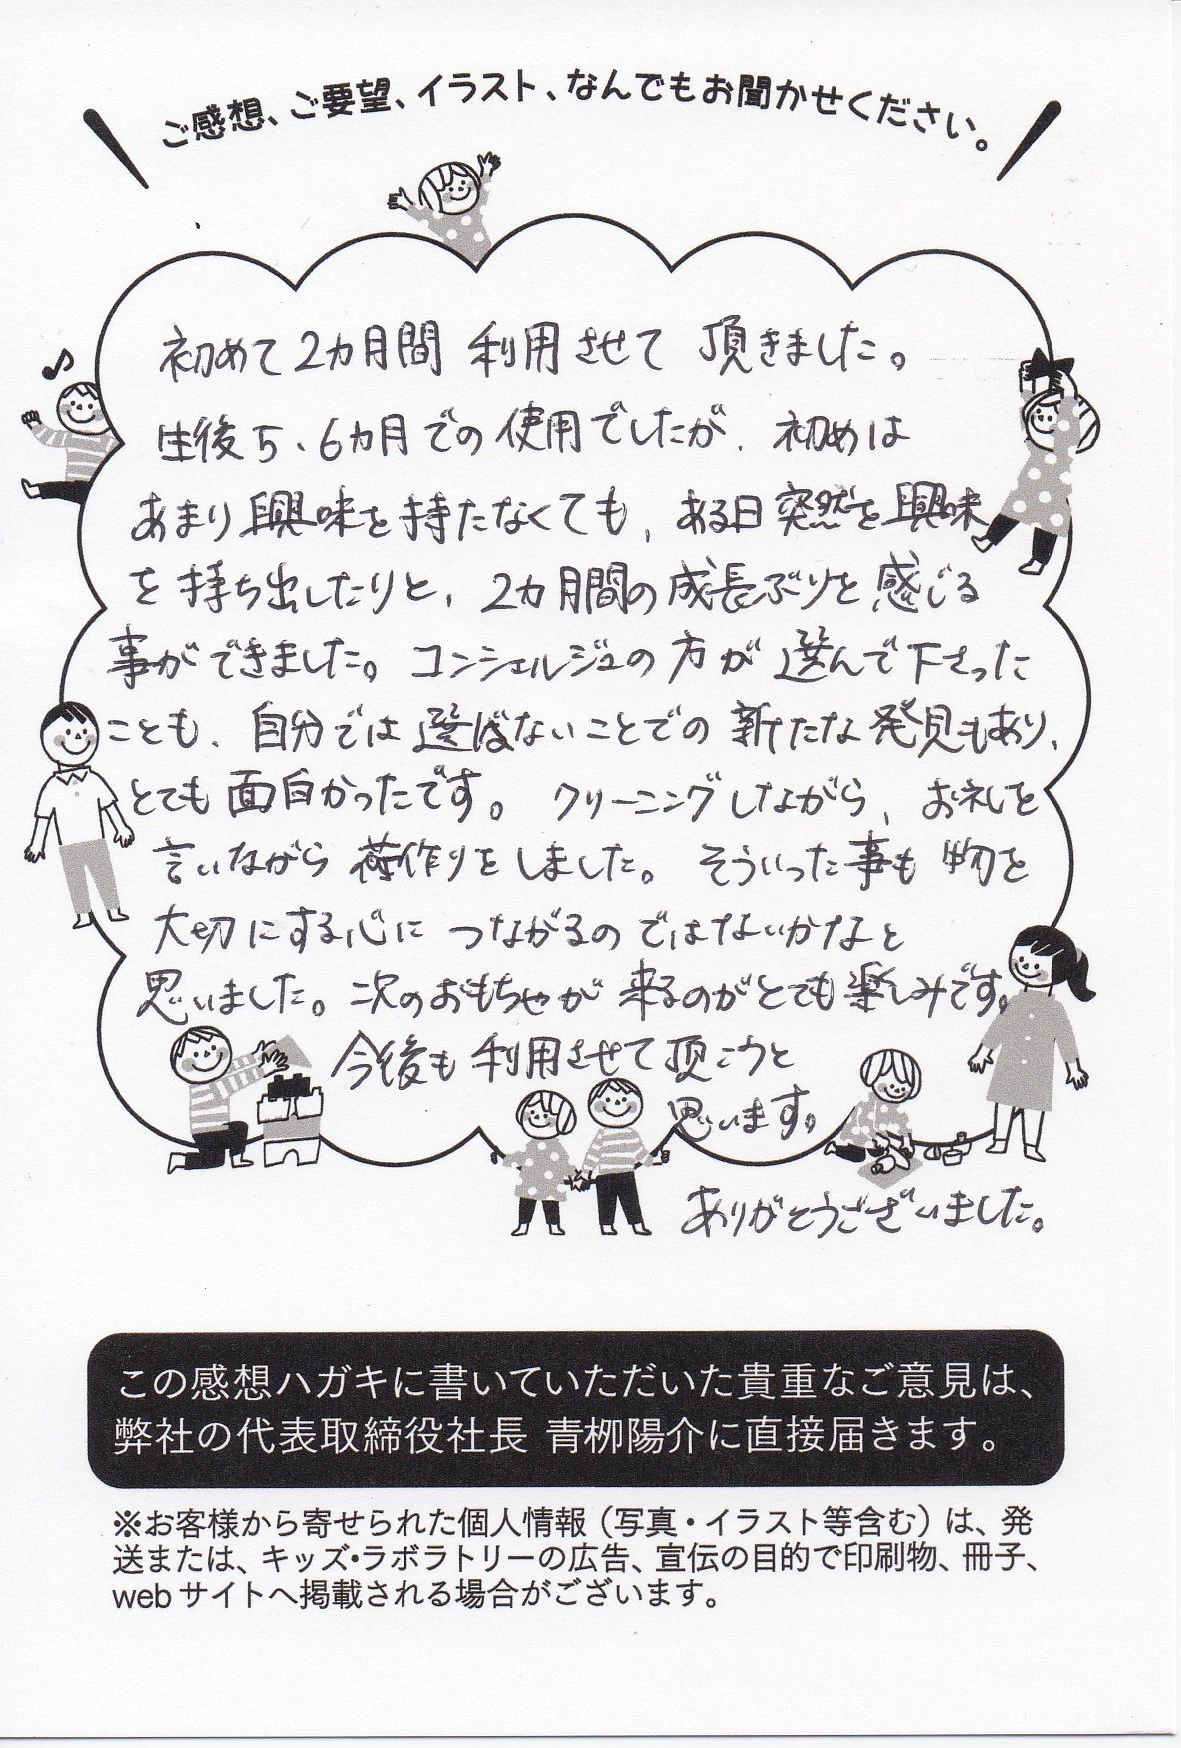 ご感想、ご要望、イラスト、なんでもお聞かせください。
初めて2カ月間 利用させて 頂きました。
生後5、6カ月での使用でしたが、初めは
あまり興味を持たなくても、ある日突然を興味
を持ち出したりと、2カ月間の成長ぶりを感じる
事ができました。コンシェルジュの方が選んで下さった
ことも、自分では選ばないことでの新たな発見もあり、
とても面白かったです。クリーニングしながら、お礼を
言いながら荷作りをしました。そういった事も物を
大切にする心につながるのではないかなと
思いました。次のおもちゃが来るのがとても楽しみです。
今後も利用させて頂こうと
思います。
ありがとうございました。
この感想ハガキに書いていただいた貴重なご意見は、
弊社の代表取締役社長 青栁陽介に直接届きます。
※お客様から寄せられた個人情報（写真・イラスト等含む）は、発
送または、キッズ・ラボラトリーの広告、宣伝の目的で印刷物、冊子、
webサイトへ掲載される場合がございます。